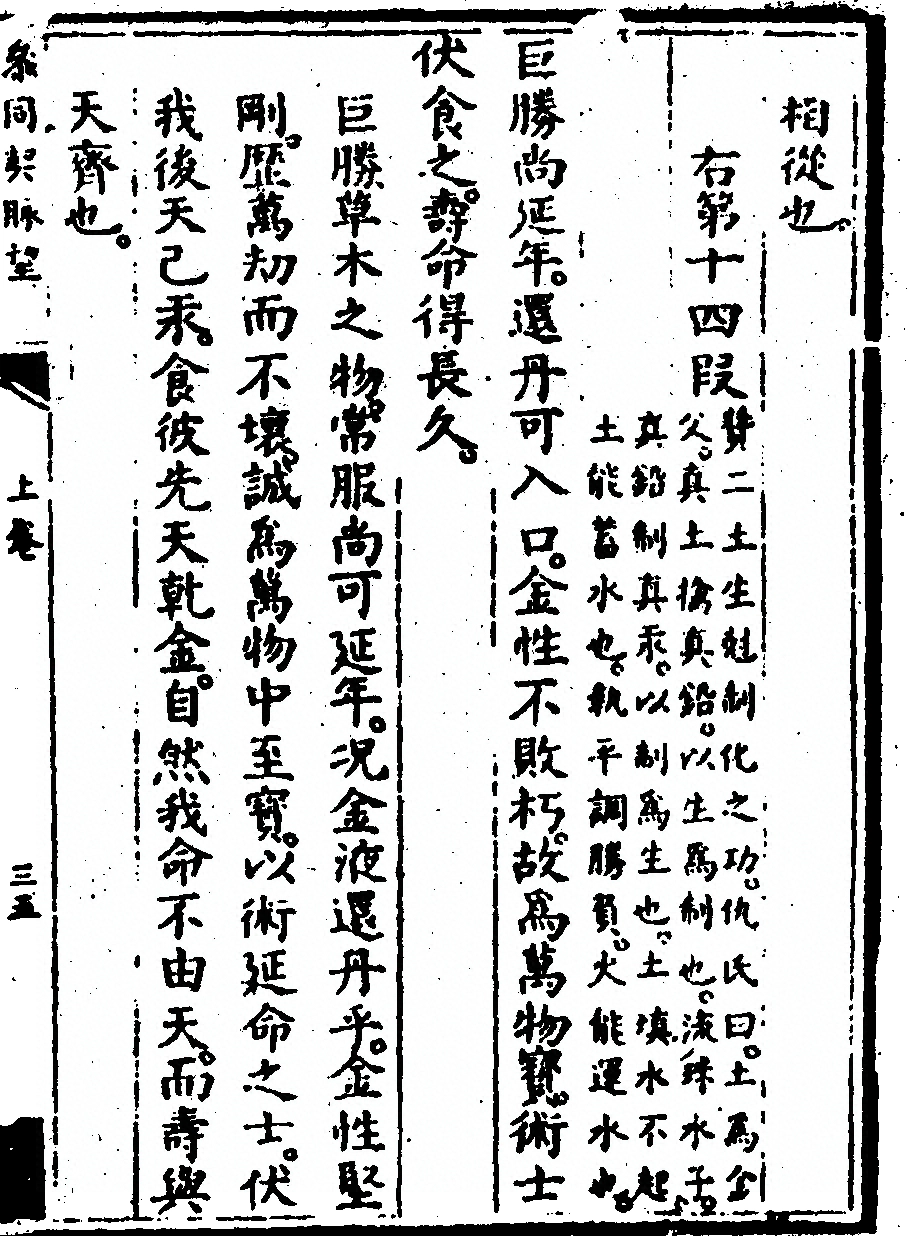 相從也。
右第十四段
贊二土生尅制化之功。仇氏曰。土爲金
父。真土擒真鉛。以生爲制也。流珠水子。
真鉛制真汞。以制爲生也。土填水不起
土能蓄水也。執平調勝負。火能運水也。
巨勝尚延年。還丹可入口。金性不敗朽。故爲萬物寶。術士
伏食之。壽命得長久。
巨勝草木之物。常服尚可延年。况金液還丹乎。金性堅
剛。歷萬劫而不壞。誠爲萬物中至寶。以術延命之士。伏
我後天己汞。食彼先天乾金。自然我命不由天。而壽與
天齊也。
參同契脉望
上卷
三五